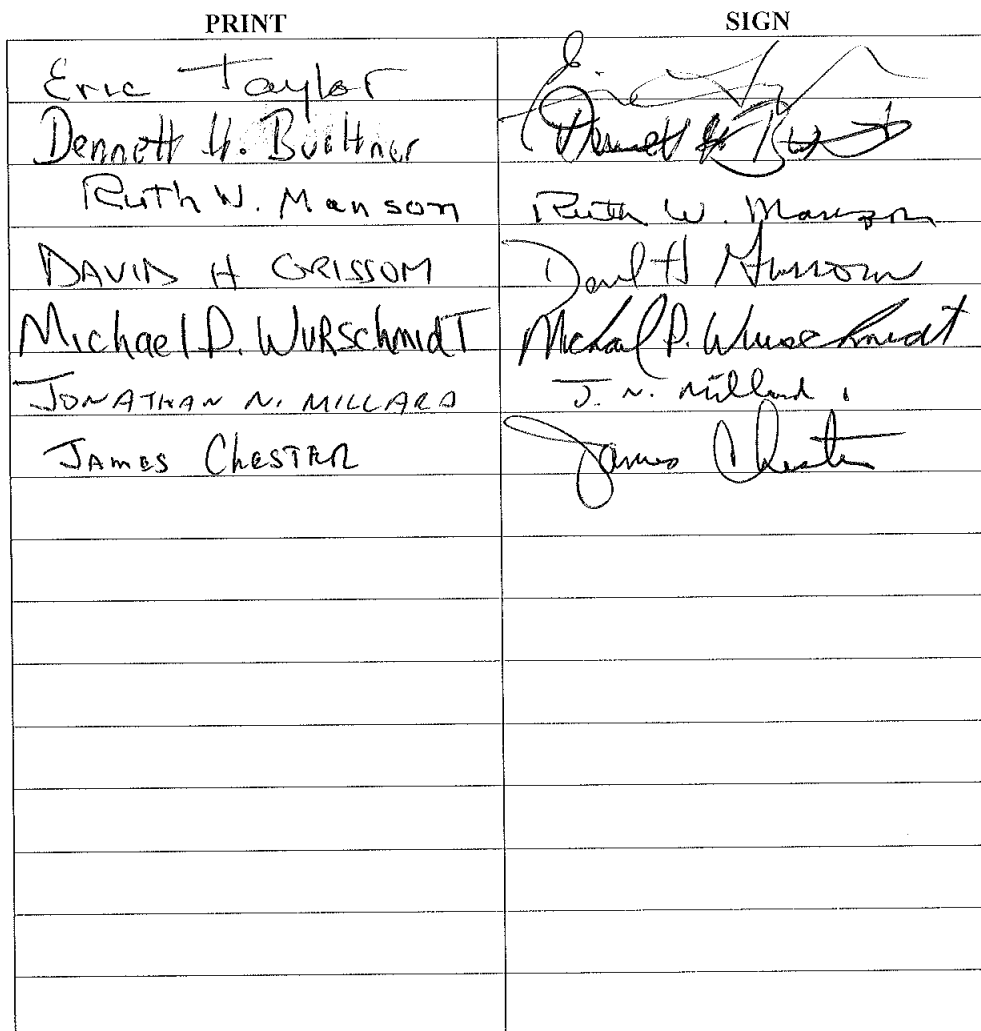 PRINT SIGN
Eric Taylor
Dennett H. Buettner
Ruth W. Manson Ruth W. Manson
DAVID H GRISSOM David H Grissom
Michael D. WURSchmidT Michael P. Wurschmidt
JONATHAN N. MILLARD J. N. Millard
JAMES CHESTER James Chester